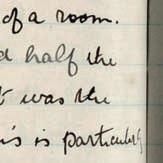 of a room.
half the
was the
is particularly